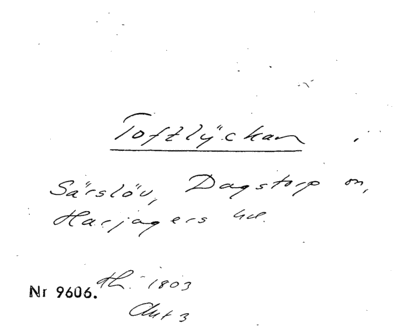 Toftlyckan
Särslöv, Dagstorp sn,
Harjagers hd.
Nr 9606. th. 1803
Akt 3